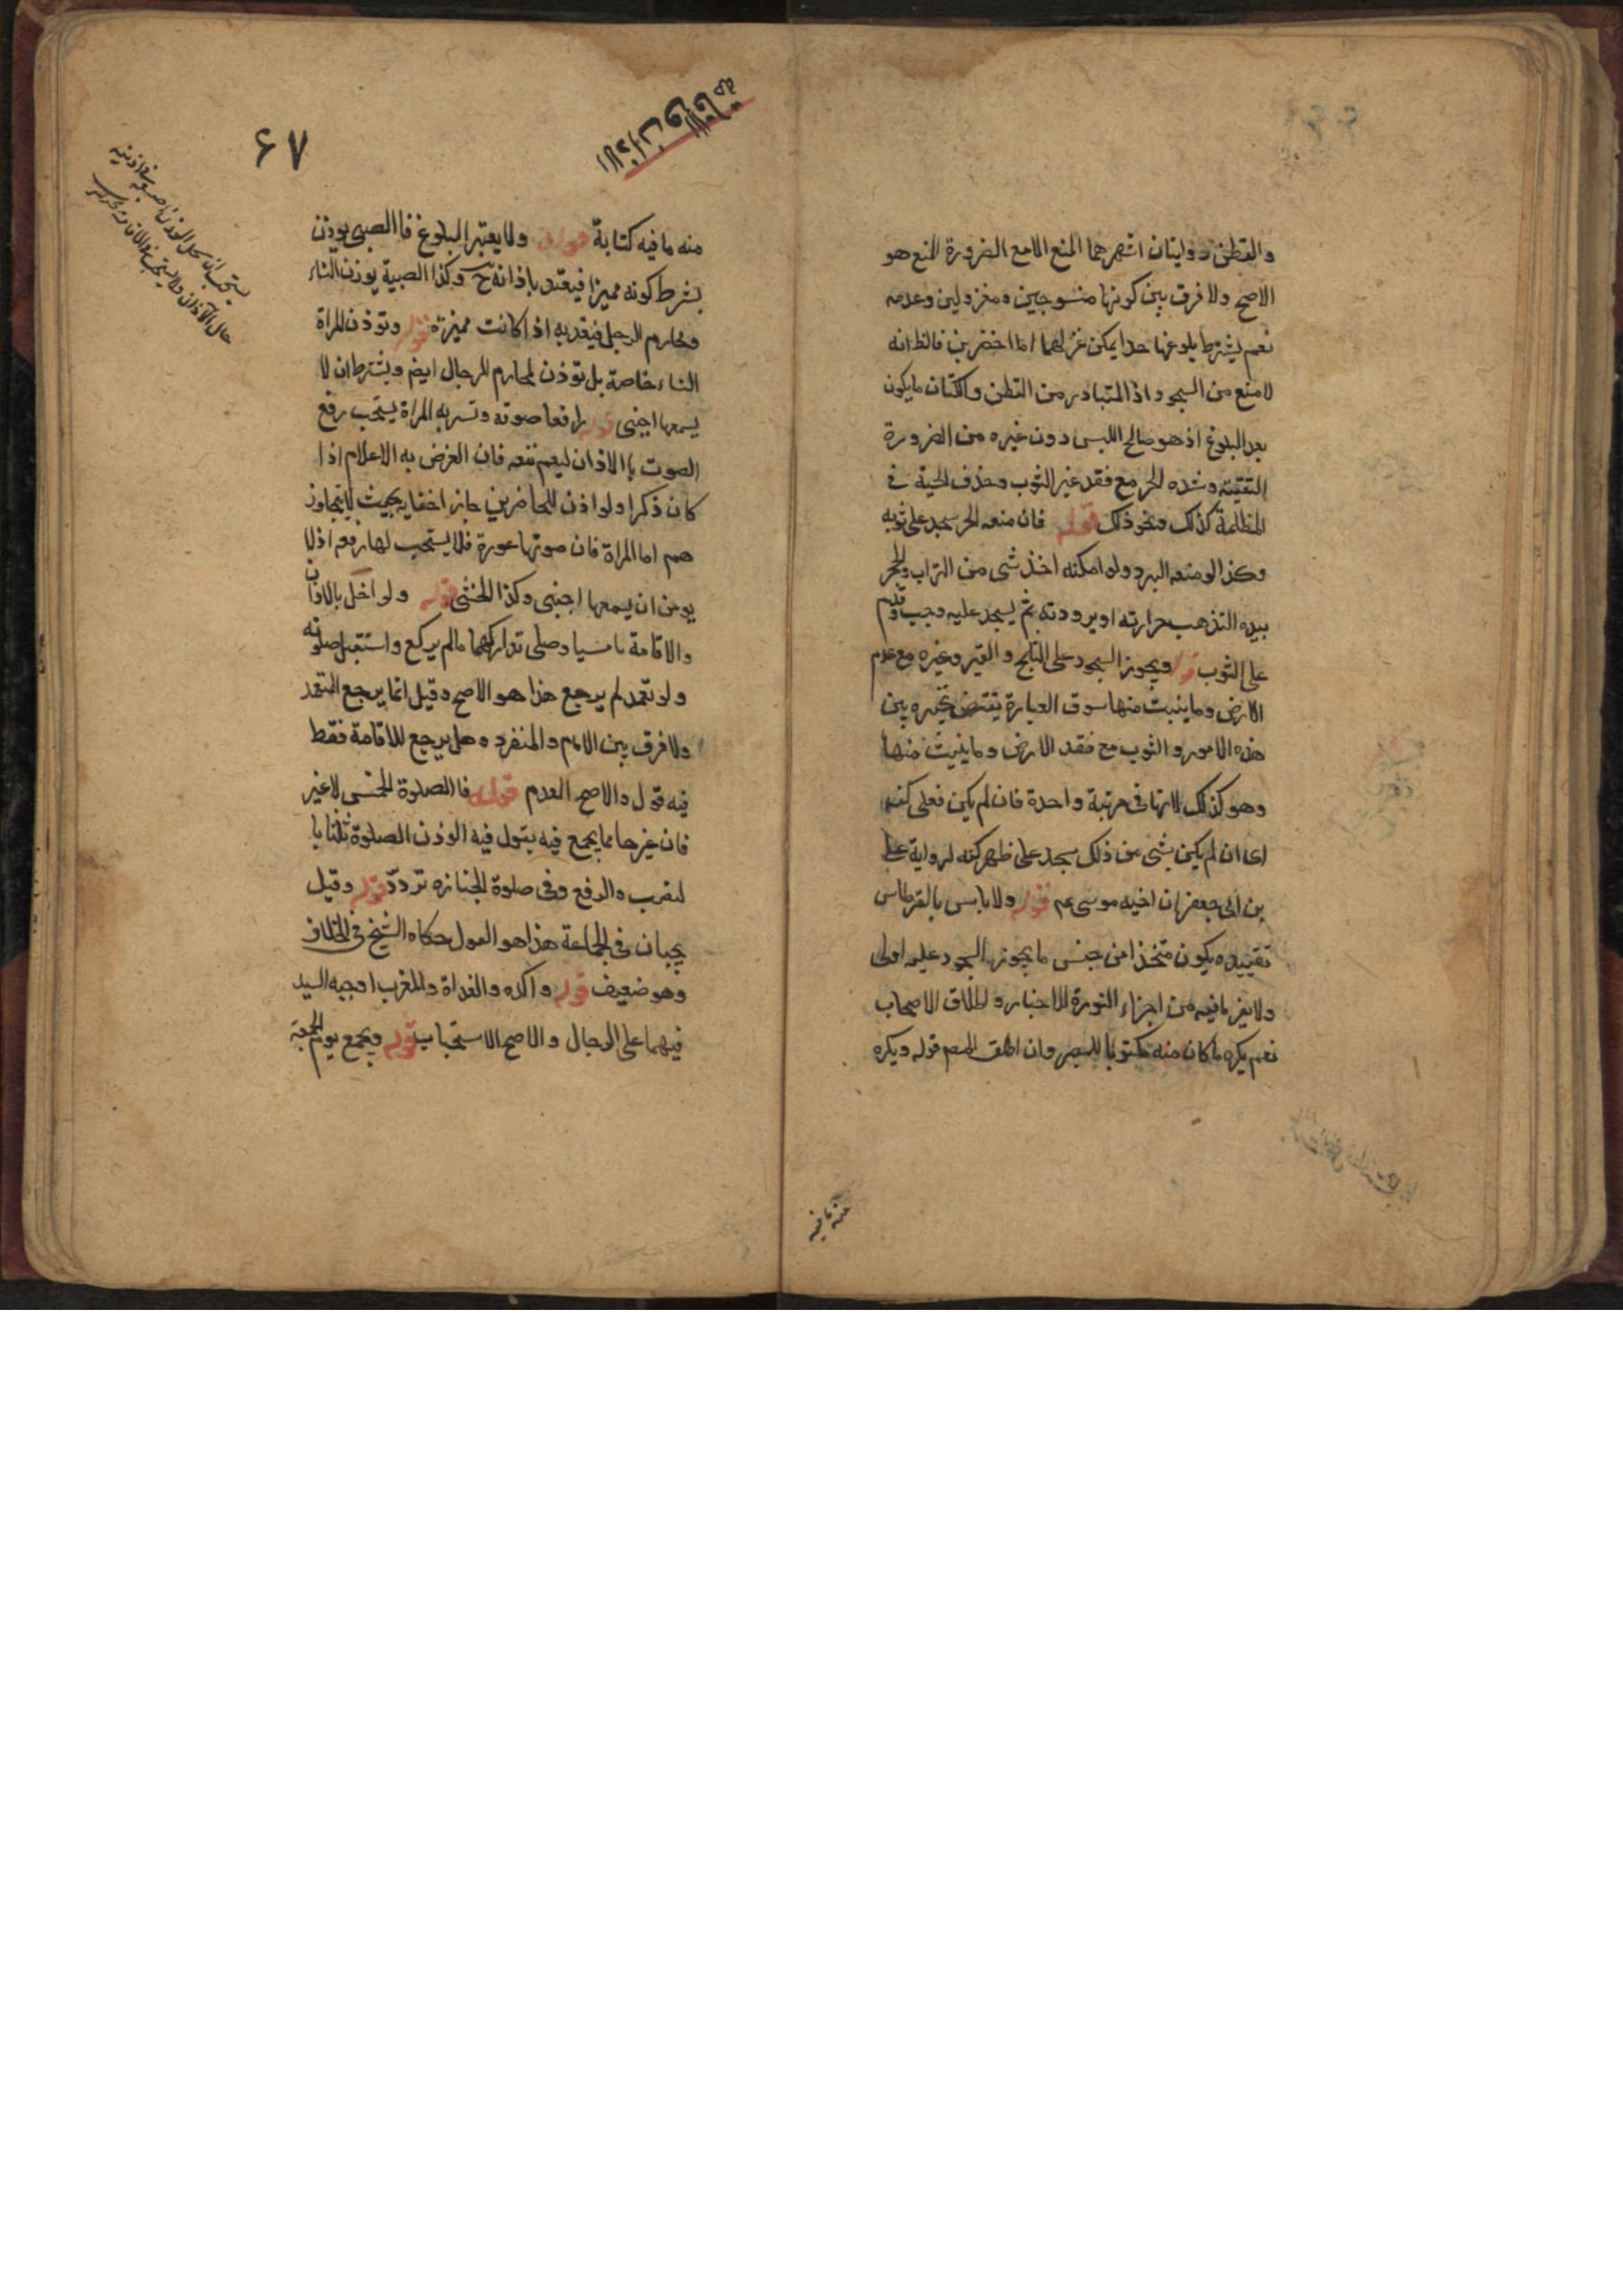 والقطن روايتان اشهرهما المنع الا مع الضرورة المنع هو
الاصح ولا فرق بين كونها منسوجين ومغزولين وعدمه
نعم يشترط بلوغها حدا يمكن غزلهما اما اخضرين فالظ انه
لا منع من السجود اذ المتبادر من القطن والكتان ما يكون
بعد البلوغ اذ هو صالح اللبس دون غيره من الضرورة
التقيته وشده الحر مع فقد غير الثوب وخذف الحية في
المظلمة كذلك ونحو ذلك قوله فان منعه الحر سجد على ثوبه
وكذا لو منعه البرد ولو امكنه اخذ شى من التراب والحجر
بيده التذهب حرارته او برودته ثم يسجد عليه وجب وقدم
على الثوب قوله ويجوز السجود على الثلج والقير وغيره مع عدم
الارض وما ينبت منها سوق العبارة يقتضى تخييره بين
هذه الامور والثوب مع فقد الارض وما ينبت منها
وهو كذلك لانها فى مرتبة واحدة فان لم يكن فعلى كفه
اى ان لم يكن شى من ذلك سجد على ظهر كفه لرواية على
بن ابى جعفر ان اخيه موسى عم قوله ولا باس بالقرطاس
تقييده بكون متخذا من جنس ما يجوز السجود عليه اولى
ولا يضر ما فيه من اجزاء النورة للاخبار ولطلاق الاصحاب
نعم يكره ما كان منه مكتوبا للبصر وان اطلق المصم قوله ويكره
منه ما فيه
الاذان والاقامة
۶۷
منه ما فيه كتابة قوله ولا يعتبر البلوغ فا الصبى يوذن
بشرط كونه مميزا فيعتد باذانه ح وكذا الصبية يوذن النساء
ومحارم الرجل فيقد به اذا كانت مميزة قوله وتوذن المراة
النساء خاصة بل توذن لمحارم الرجال ايضم ويشترط ان لا
يسمعها اجنبى قوله رافعا صوته وتسر به المراة يستحب رفع
الصوت با الاذان ليعم نفعه فان الغرض به الاعلام اذا
كان ذكرا ولو اذن للحاضرين جاز اخفايه بحيث لا يتجاوز
هم اما المراة فان صوتها عورة فلا يستحب لها رفعه اذ لا
يومن ان يسمعها اجنبى وكذا الخنثى قوله ولو اخل بالاذان
والاقامة ناسيا وصلى تداركهما مالم يركع واستقبل صلوته
ولو تعمد لم يرجع هذا هو الاصح وقيل انما يرجع المتعمد
ولا فرق بين الامام والمنفرد وهل يرجع للاقامة فقط
فيه قول والاصح العدم قوله فا الصلوة الخمس لا غير
فان غيرها مما يجمع فيه يقول فيه الوذن الصلوة ثلثا با
لنصب والرفع وفى صلوة الجنازه تردد قوله وقيل
يجبان فى الجماعة هذا هو القول حكاه الشيخ فى الخلاف
وهو ضعيف قوله واكده والغداة والمغرب اوجبه السيد
فيهما على الرجال والاصح الاستحباب قوله ويجمع يوم الجمعة